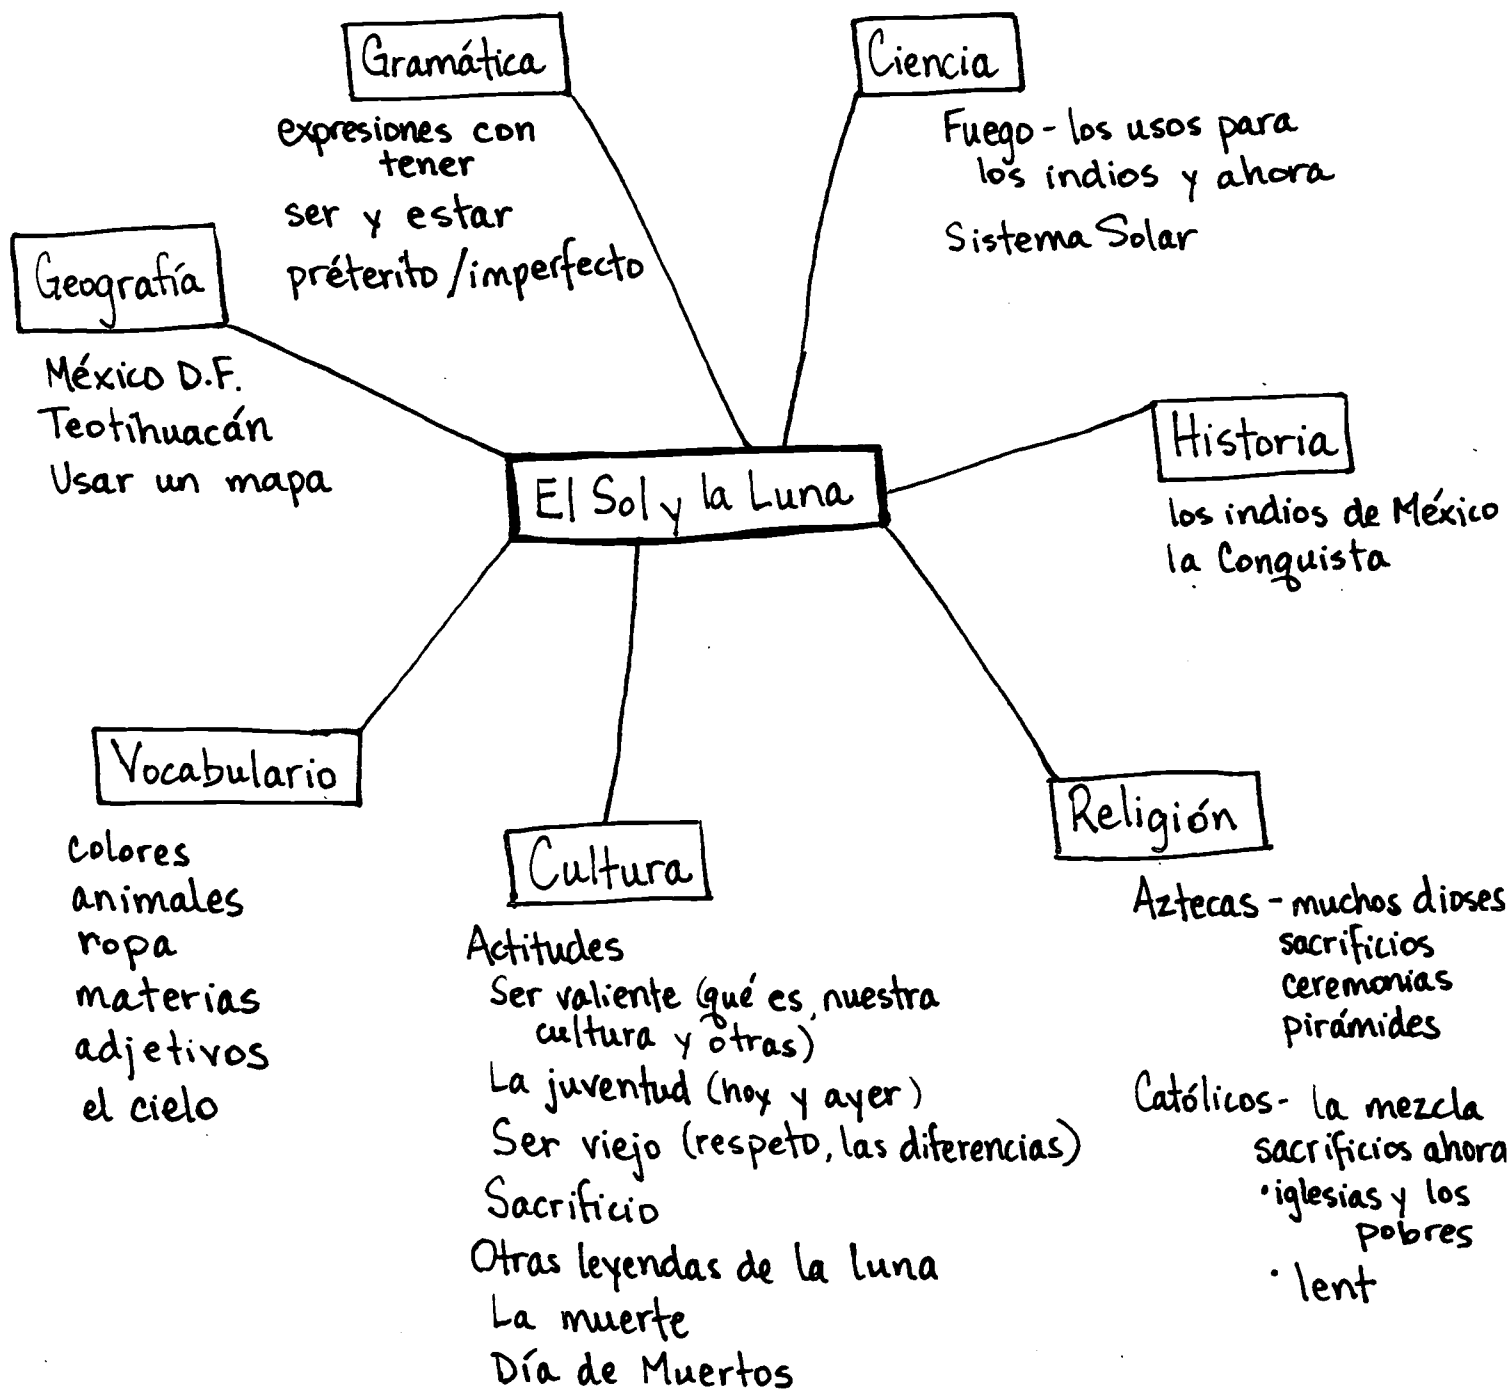 Gramática
expresiones con
tener
ser y estar
préterito/imperfecto
Ciencia
Fuego - los usos para
los indios y ahora
Sistema Solar
Geografía
México D.F.
Teotihuacán
Usar un mapa
El Sol y la Luna
Historia
los indios de México
la Conquista
Vocabulario
colores
animales
ropa
materias
adjetivos
el cielo
Cultura
Actitudes
Ser valiente (qué es, nuestra
cultura y otras)
La juventud (hoy y ayer)
Ser viejo (respeto, las diferencias)
Sacrificio
Otras leyendas de la luna
La muerte
Día de Muertos
Religión
Aztecas - muchos dioses
sacrificios
ceremonias
pirámides
Católicos - la mezcla
sacrificios ahora
• iglesias y los
pobres
• lent